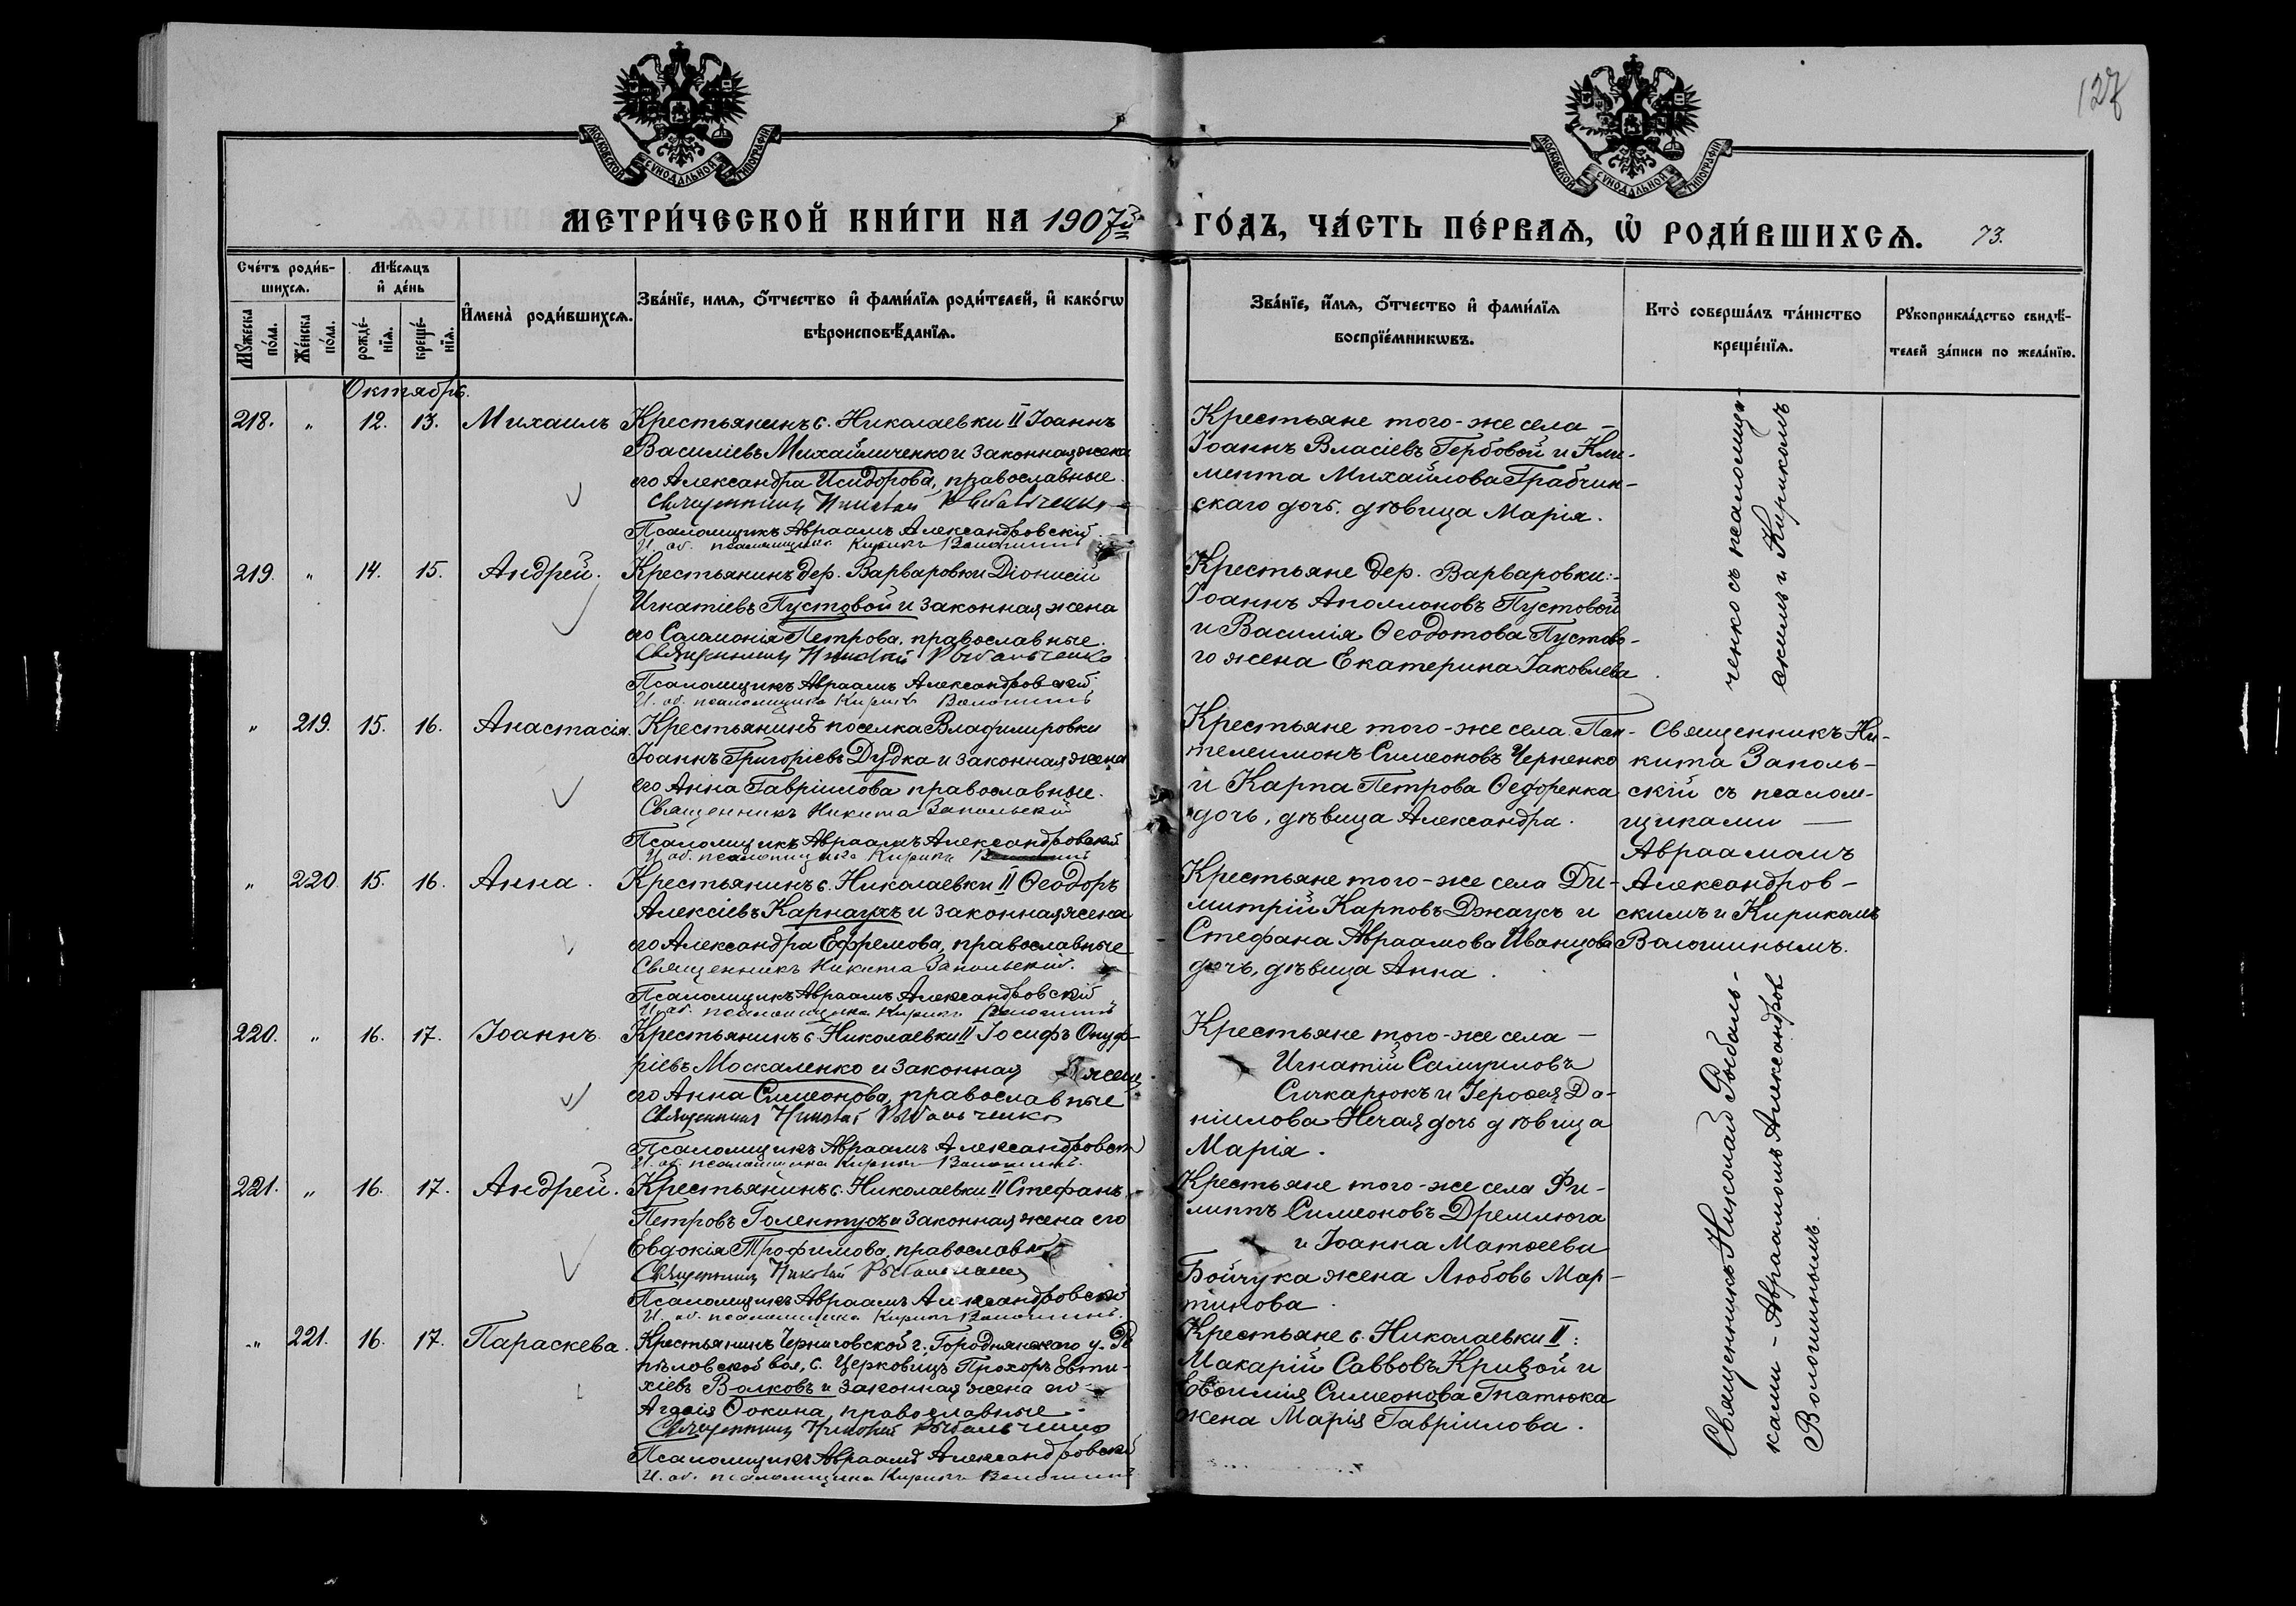 127
МОСКОВСКОЙ СѴНОДАЛЬНОЙ ТИПОГРАФІИ
МОСКОВСКОЙ СѴНОДАЛЬНОЙ ТИПОГРАФІИ
МЕТРИ́ЧЕСКОЙ КНИ́ГИ НА 1907й ГО́ДЪ, ЧА́СТЬ ПЕ́РВАѦ, Ѡ҆ РОДИ́ВШИХСѦ. 73.
Сче́тъ роди́в-
шихсѧ.
Мꙋ́жеска по́ла.
Же́нска по́ла.
Мѣ́сѧцъ
и҆ де́нь
рожде́-
нїѧ.
креще́-
нїѧ.
И҆мена̀ роди́вшихсѧ.
Зва́нїе, имѧ, ѻ҆́тчество и҆ фами́лїѧ роди́телей, и҆ како́гѡ
вѣроисповѣ́данїѧ.
Зва́нїе, и҆́мѧ, ѻ҆́тчество и҆ фами́лїѧ
воспрїе́мникѡвъ.
Кто̀ соверша́лъ та́инство
креще́нїѧ.
Рꙋкоприкла́дство свидѣ́-
телей за́писи по жела́нїю.
Октябрь.
218. " 12. 13. Михаилъ Крестьянинъ с. Николаевки II Іоаннъ
Василіевъ Михайличенко и законная жена
его Александра Исидорова, православные.
Священникъ Николай Рыбальченко
Псаломщикъ Авраамъ Александровскій
И. об. псаломщика Кирикъ Волошинъ
Крестьяне того-же села –
Іоаннъ Власіевъ Гербовой и Кли-
мента Михайлова Грабчин-
скаго дочь. дѣвица Марія.
219. " 14. 15. Андрей. Крестьянинъ дер. Варваровки Діонисій
Игнатіевъ Пустовой и законная жена
его Саломонія Петрова, православные.
Священникъ Николай Рыбальченко
Псаломщикъ Авраамъ Александровскій
И. об. псаломщика Кирикъ Волошинъ
Крестьяне дер. Варваровки:-
Іоаннъ Аполлоновъ Пустовой
и Василія Ѳеодотова Пустово-
го жена Екатерина Іаковлева.
" 219. 15. 16. Анастасія. Крестьянинъ поселка Владимировки
Іоаннъ Григоріевъ Дудка и законная жена
его Анна Гавріилова православные.
Священникъ Никита Запольскій
Псаломщикъ Авраамъ Александровскій
И. об. псаломщика Кирикъ Волошинъ
Крестьяне того-же села Пан-
телеимонъ Симеоновъ Черненко
и Карпа Петрова Ѳедоренка
дочь, дѣвица Александра.
" 220. 15. 16. Анна. Крестьянинъ с. Николаевки II Ѳеодоръ
Алексіевъ Карнаухъ и законная жена
его Александра Ефремова, православные
Священникъ Никита Запольскій.
Псаломщикъ Авраамъ Александровскій
И. об. псаломщика Кирикъ Волошинъ
Крестьяне того-же села Ди-
митрій Карповъ Джаусъ и
Стефана Авраамова Иванцова
дочь, дѣвица Анна.
220. " 16. 17. Іоаннъ. Крестьянинъ с. Николаевки II Іосифъ Онуф-
ріевъ Москаленко и законная жена
его Анна Симеонова, православные
Священникъ Николай Рыбальченко
Псаломщикъ Авраамъ Александровскій
И. об. псаломщика Кирикъ Волошинъ.
Крестьяне того-же села –
Игнатій Самуиловъ
Сичкарюкъ и Іероѳея Да-
ніилова Нечая дочь дѣвица
Марія.
221. " 16. 17. Андрей. Крестьянинъ с. Николаевки II Стефанъ
Петровъ Голентусъ и законная жена его
Евдокія Трофимова, православные
Священникъ Николай Рыбальченко
Псаломщикъ Авраамъ Александровскій
И. об. псаломщика Кирикъ Волошинъ.
Крестьяне того-же села Фи-
липпъ Симеоновъ Дремлюга
и Іоанна Матѳеева
Бойчука жена Любовь Мар-
тинова.
" 221. 16. 17. Параскева. Крестьянинъ Черниговской г., Городнянскаго у. Рѣ
пѣловской вол., с. Церковищъ Прохоръ Евти-
хіевъ Волковъ и законная жена его
Агаѳія Ѳокина, православные
Священникъ Николай Рыбальченко
Псаломщикъ Авраамъ Александровскій
И. об. псаломщика Кирикъ Волошинъ
Крестьяне с. Николаевки II:
Макарій Саввовъ Кривой и
Евѳимія Симеонова Гнатюка
жена Марія Гавріилова.
Священникъ Ни-
кита Заполь-
скій съ псалом-
щиками —
Авраамомъ
Александров-
скимъ и Кирикомъ
Волошинымъ.
Священникъ Николай Рыбаль-
ченко съ псаломщи-
ками - Авраамомъ Александров
скимъ и Кирикомъ
Волошинымъ.